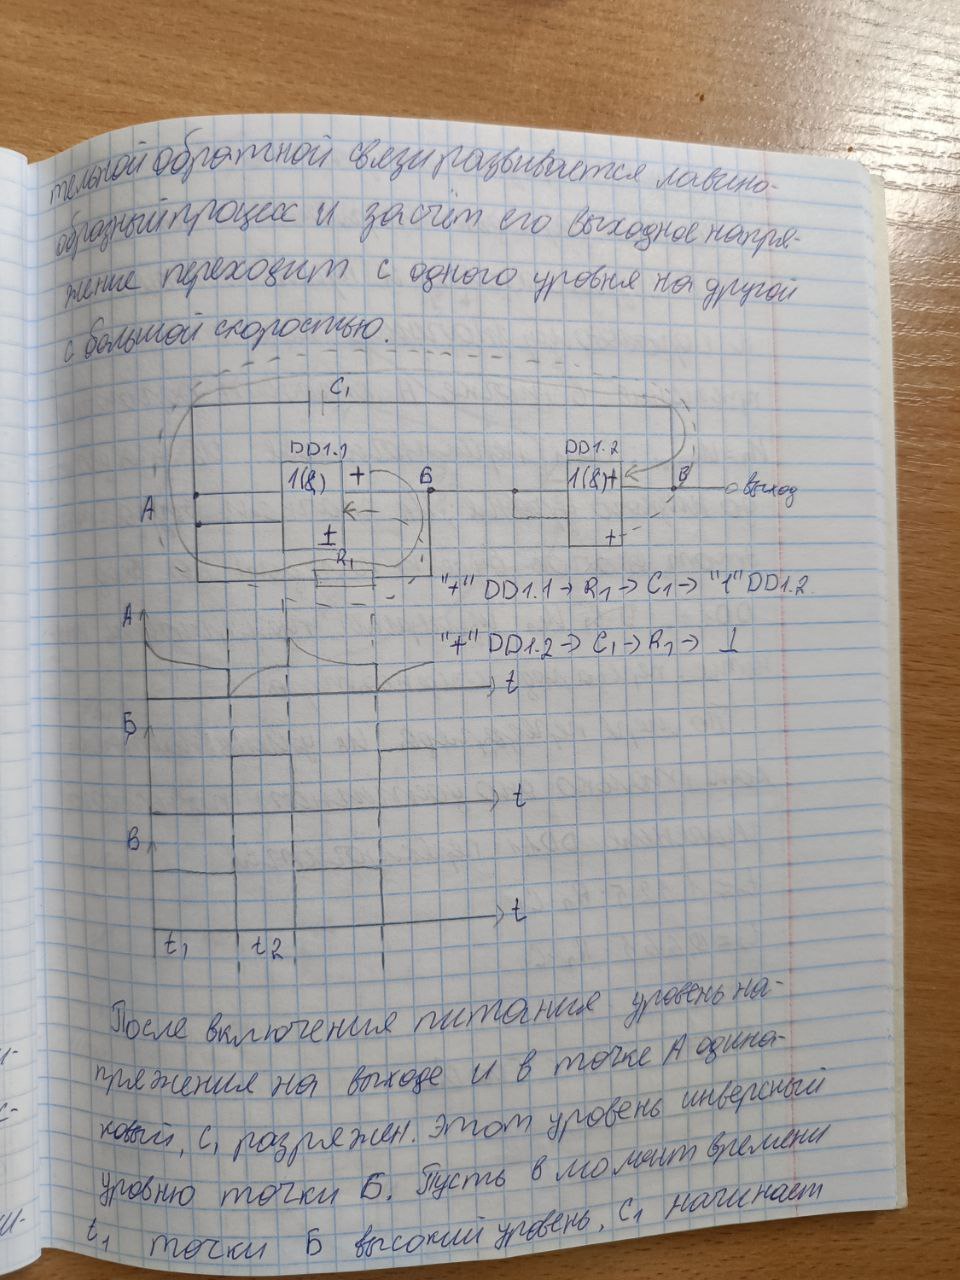 тельной обратной связи развивается лавино-
образный процесс и за счёт его выходное напря-
жение переходит с одного уровня на другой
с большой скоростью.
C1
DD1.1
DD1.2
1(&)
+
Б
1(&)+
В
выход
А
⊥
R1
+
"+" DD1.1 → R1 → C1 → "1" DD1.2
А
"+" DD1.2 → C1 → R1 → ⊥
t
Б
t
В
t
t1
t2
После включения питания уровень на-
пряжения на выходе и в точке А одина-
ковый, C1 разряжен. Этот уровень инверсный
уровню точки Б. Пусть в момент времени
t1 точки Б высокий уровень, C1 начинает